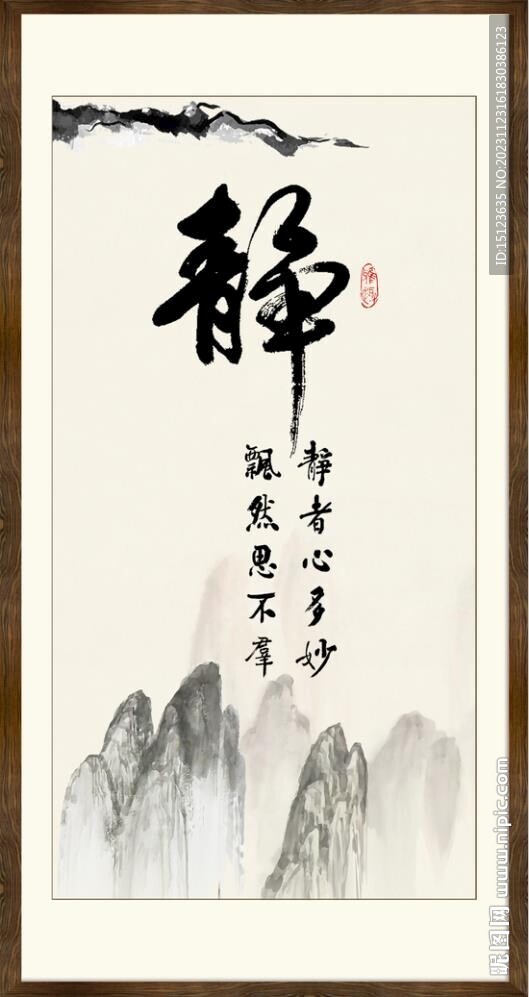 静
靜者心多妙
飄然思不羣
ID:15123635 NO:20231123161830386123
昵图网 www.nipic.com